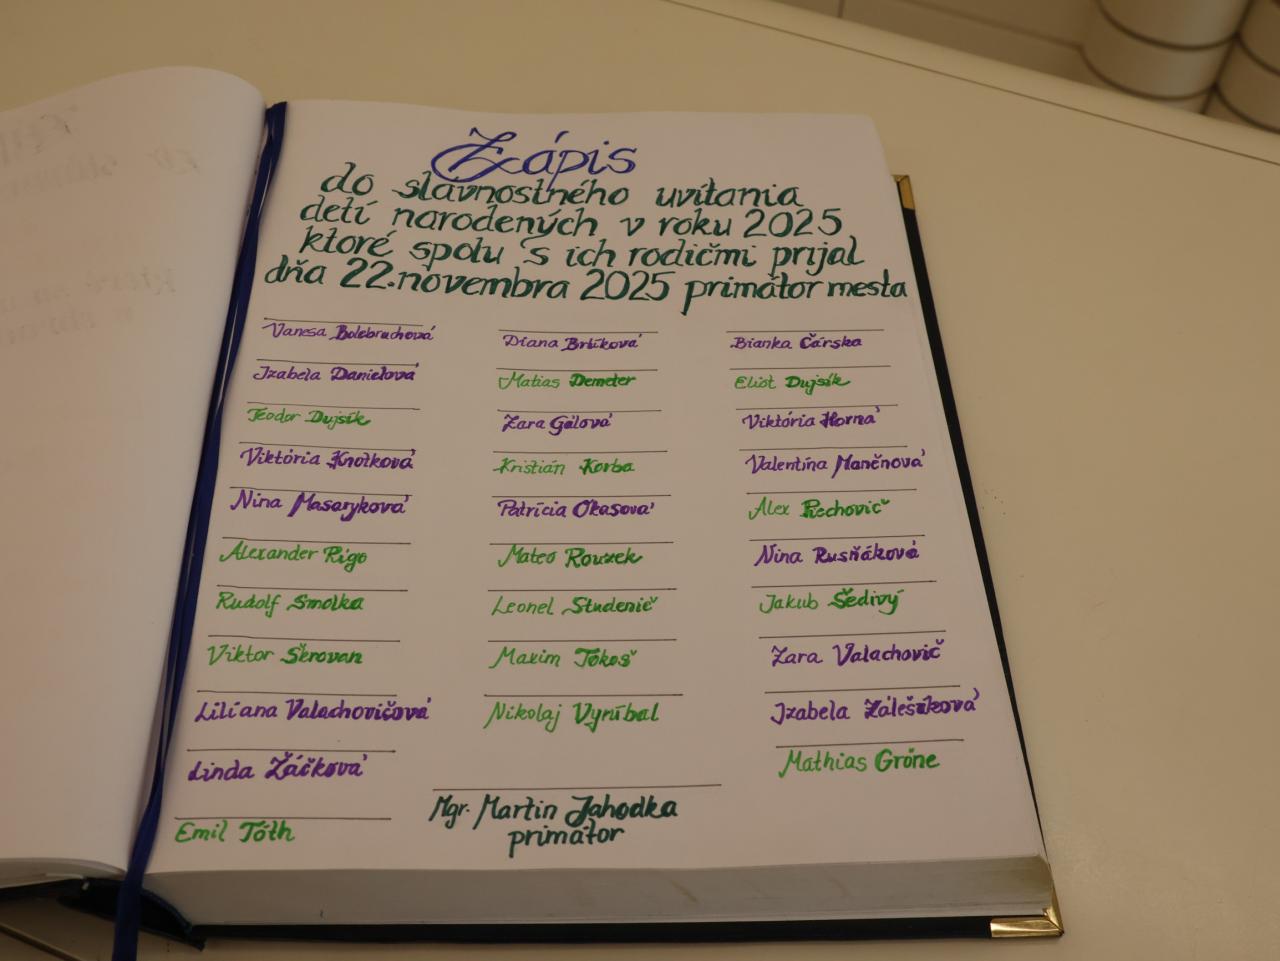 Zápis
do slávnostného uvítania
detí narodených v roku 2025
ktoré spolu s ich rodičmi prijal
dňa 22.novembra 2025 primátor mesta
Vanesa Bolebruchová
Diana Brliková
Bianka Čárska
Izabela Danielová
Matias Demeter
Eliot Dujsík
Teodor Dujsík
Zara Gálová
Viktória Horná
Viktória Knotková
Kristián Korba
Valentína Mančnová
Nina Masaryková
Patrícia Okasová
Alex Rechovič
Alexander Rigo
Mateo Rouzek
Nina Rusňáková
Rudolf Smolka
Leonel Studenič
Jakub Šedivý
Viktor Škrovan
Maxim Tokoš
Zara Valachovič
Liliana Valachovičová
Nikolaj Vyríbal
Izabela Zálešíková
Linda Žáčková
Mathias Gróne
Emil Tóth
Mgr. Martin Jahodka
primátor